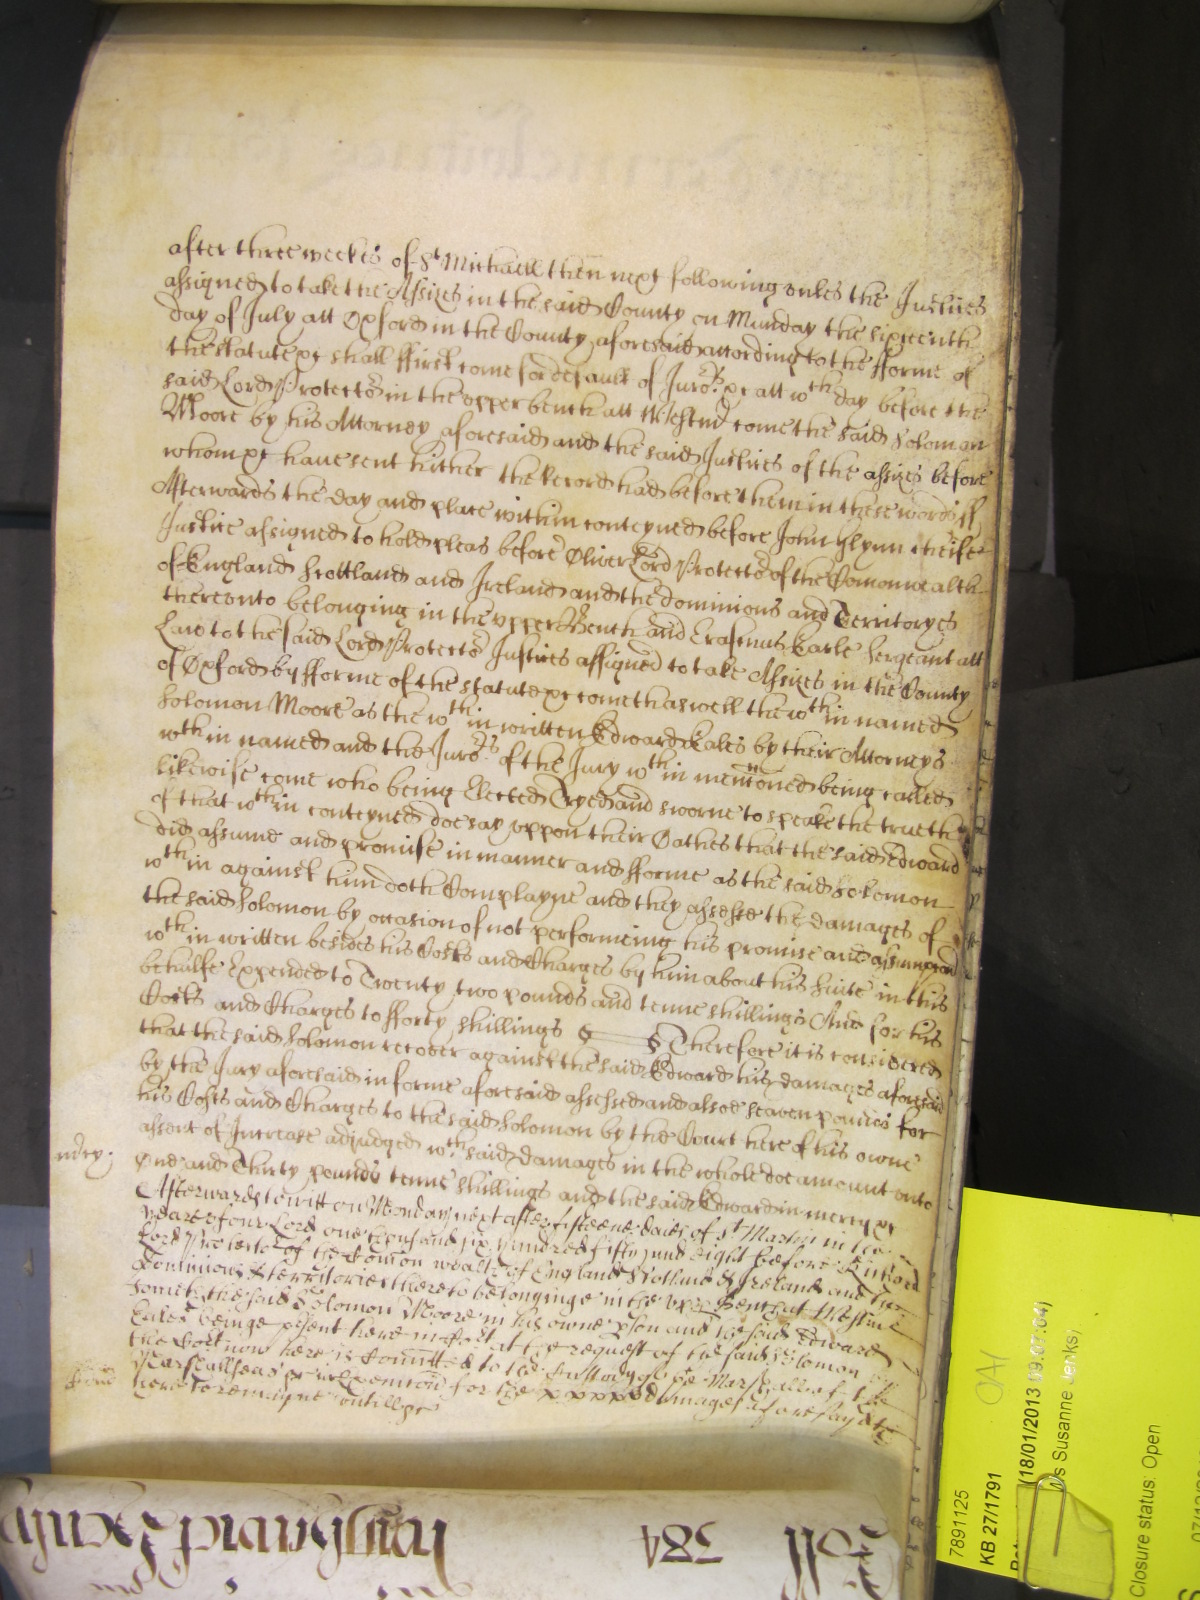 after three weekes of St Michaell then next following unles the Justices
assigned to take the Assizes in the said County on Munday the sixteenth
day of July att Oxford in the County aforesaid according to the fforme of
the statute &c shall ffirst come for default of Juro.rs &c att wth day before the
said Lord Protector in the upper bench att Westmr come the said Soloman
Moore by his Attorney aforesaid and the said Justices of the assizes before
whom &c have sent hither the Record had before them in these words ss
Afterwards the day and place within conteyned before John Glynn cheife
Justice assigned to hold pleas before Oliver Lord Protector of the Comonwealth
of England Scottland and Ireland and the dominions and Territoryes
thereunto belonging in the upper Bench and Erasmus Earle Sergeant att
Law to the said Lord Protector Justices assigned to take Assizes in the County
of Oxford by fforme of the statute &c cometh aswell the wthin named
Solomon Moore as the wthin written Edward Eales by their Attorneys
wthin named and the Juro.rs of the Jury wthin mentoned being called
likewise come who being Elected Tryed and sworne to speake the trueth
of that wthin conteyned doe say uppon their Oathes that the said Edward
did assume and promise in manner and fforme as the said Solomon
wthin against him doth Complayne and they assesse the damages of
the said Solomon by occasion of not performeing his promise and assumpcon
wthin written besides his Costs and Charges by him about his suite in this
behalfe Expended to Twenty two pounds and tenne shillings And for his
Costs and Charges to fforty shillings Therefore it is considered
that the said Solomon recover against the said Edward his damages aforesaid
by the Jury aforesaid in forme aforesaid assessed and alsoe seaven pounds for
his Costs and Charges to the said Solomon by the Court here of his owne
assent of Increase adjudged wth said damages in the whole doe amount unto
One and Thirty pounds tenne shillings and the said Edward in mercy &c
Afterwards to witt on Monday next after fifteene daies of St Martin in the
yeare of our Lord one thousand six hundred fifty and eight before Richard
Lord Protector of the Comon wealth of England Scotland & Ireland and the
Dominions & territories thereto belonginge in the upper Bench at Westmr
Cometh the said Solomon Moore in his owne pson and the said Edward
Eales beinge psent here in Cort at the request of the said Solomon
the Cort now here is Comitted to the Marshall of the
Marshallseas &c in execution for the damages aforesayd
there to remayne untill &c
mcy.
7891125
KB 27/1791
(18/01/2013 09:07:04)
Susanne Jenks)
Closure status: Open
Roll 384